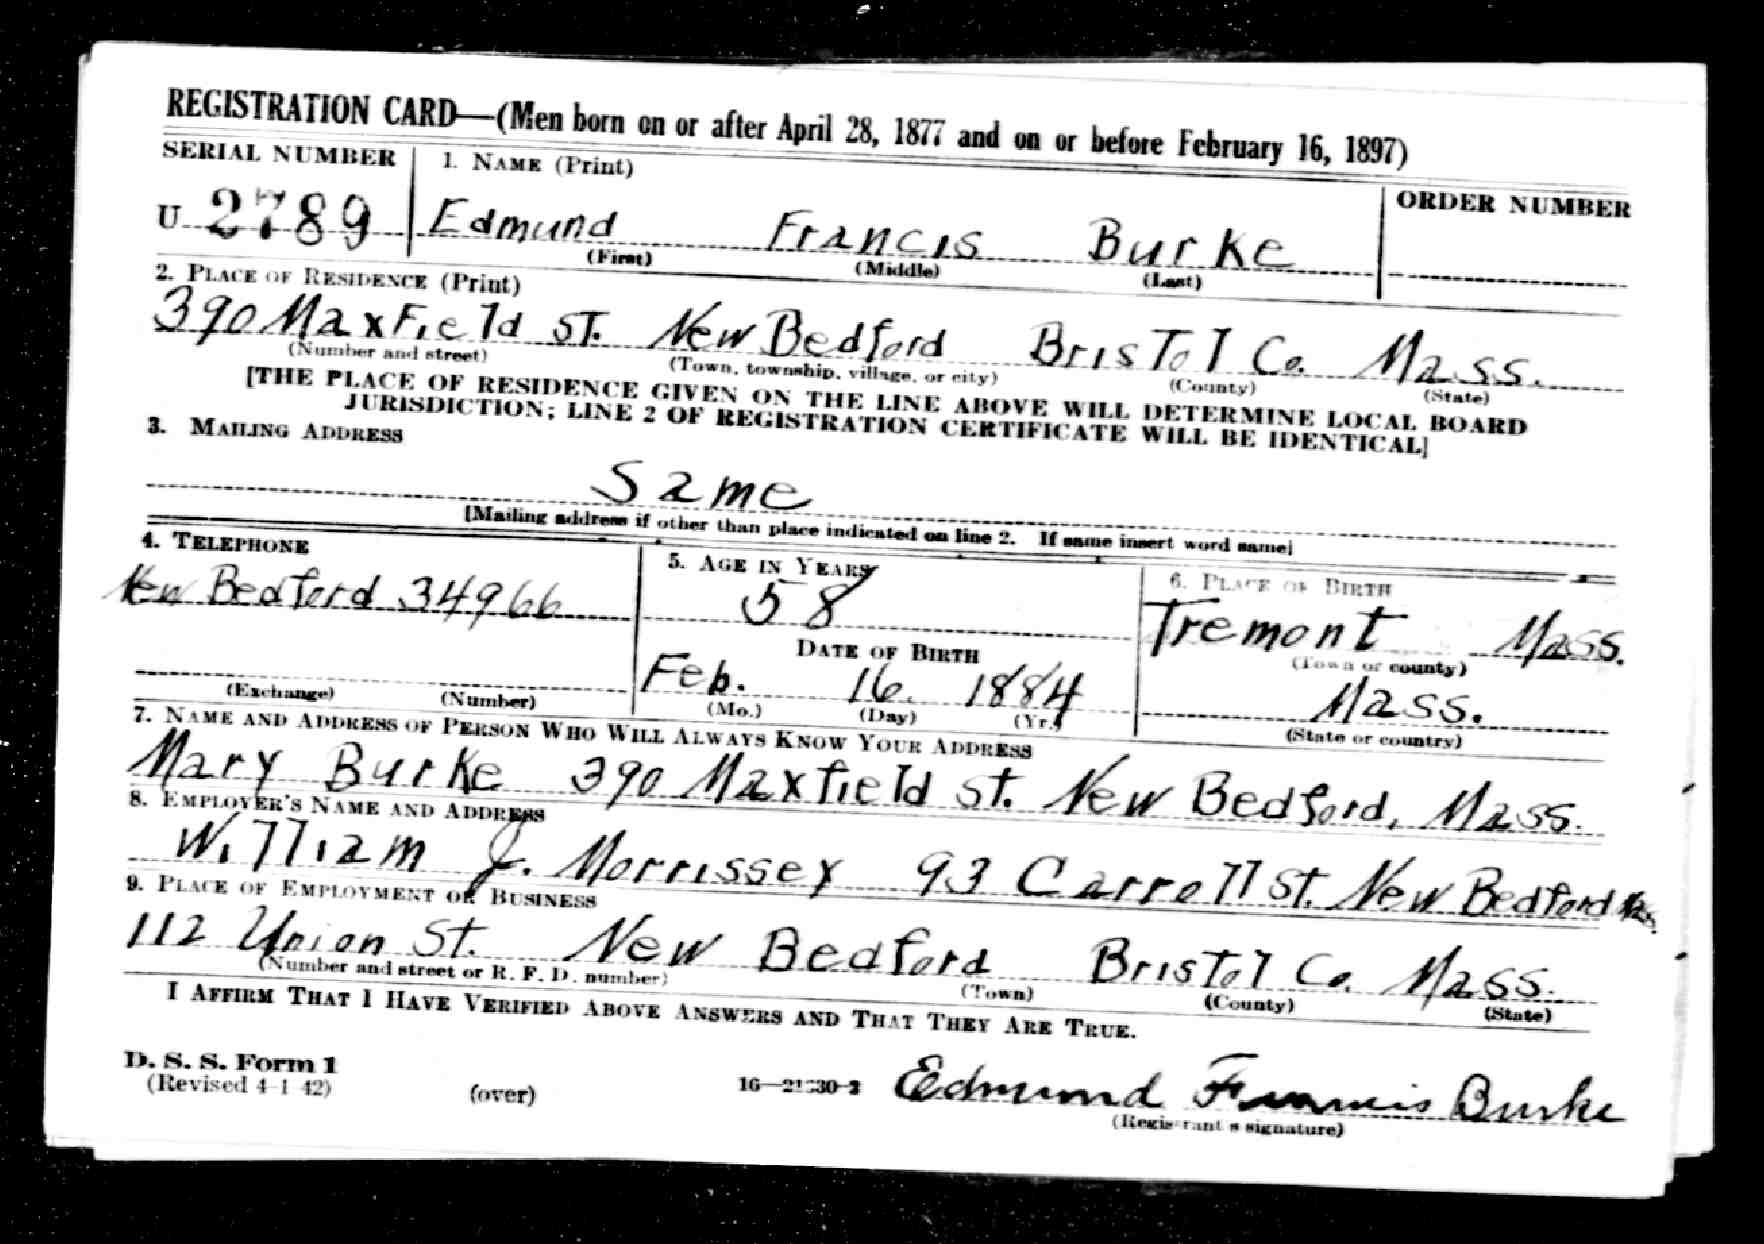 REGISTRATION CARD—(Men born on or after April 28, 1877 and on or before February 16, 1897)
SERIAL NUMBER
1. NAME (Print)
ORDER NUMBER
U 2789
Edmund Francis Burke
(First) (Middle) (Last)
2. PLACE OF RESIDENCE (Print)
390 Maxfield St. New Bedford Bristol Co. Mass.
(Number and street) (Town, township, village, or city) (County) (State)
[THE PLACE OF RESIDENCE GIVEN ON THE LINE ABOVE WILL DETERMINE LOCAL BOARD
JURISDICTION; LINE 2 OF REGISTRATION CERTIFICATE WILL BE IDENTICAL]
3. MAILING ADDRESS
Same
[Mailing address if other than place indicated on line 2. If same insert word same]
4. TELEPHONE
New Bedford 34966
(Exchange) (Number)
5. AGE IN YEARS
58
DATE OF BIRTH
Feb. 16. 1884
(Mo.) (Day) (Yr.)
6. PLACE OF BIRTH
Tremont Mass.
(Town or county)
Mass.
(State or country)
7. NAME AND ADDRESS OF PERSON WHO WILL ALWAYS KNOW YOUR ADDRESS
Mary Burke 390 Maxfield St. New Bedford, Mass.
8. EMPLOYER'S NAME AND ADDRESS
William J. Morrissey 93 Carroll St. New Bedford
9. PLACE OF EMPLOYMENT OR BUSINESS
112 Union St. New Bedford Bristol Co. Mass.
(Number and street or R. F. D. number) (Town) (County) (State)
I AFFIRM THAT I HAVE VERIFIED ABOVE ANSWERS AND THAT THEY ARE TRUE.
D. S. S. Form 1
(Revised 4-1-42) (over)
Edmund Francis Burke
(Registrant's signature)